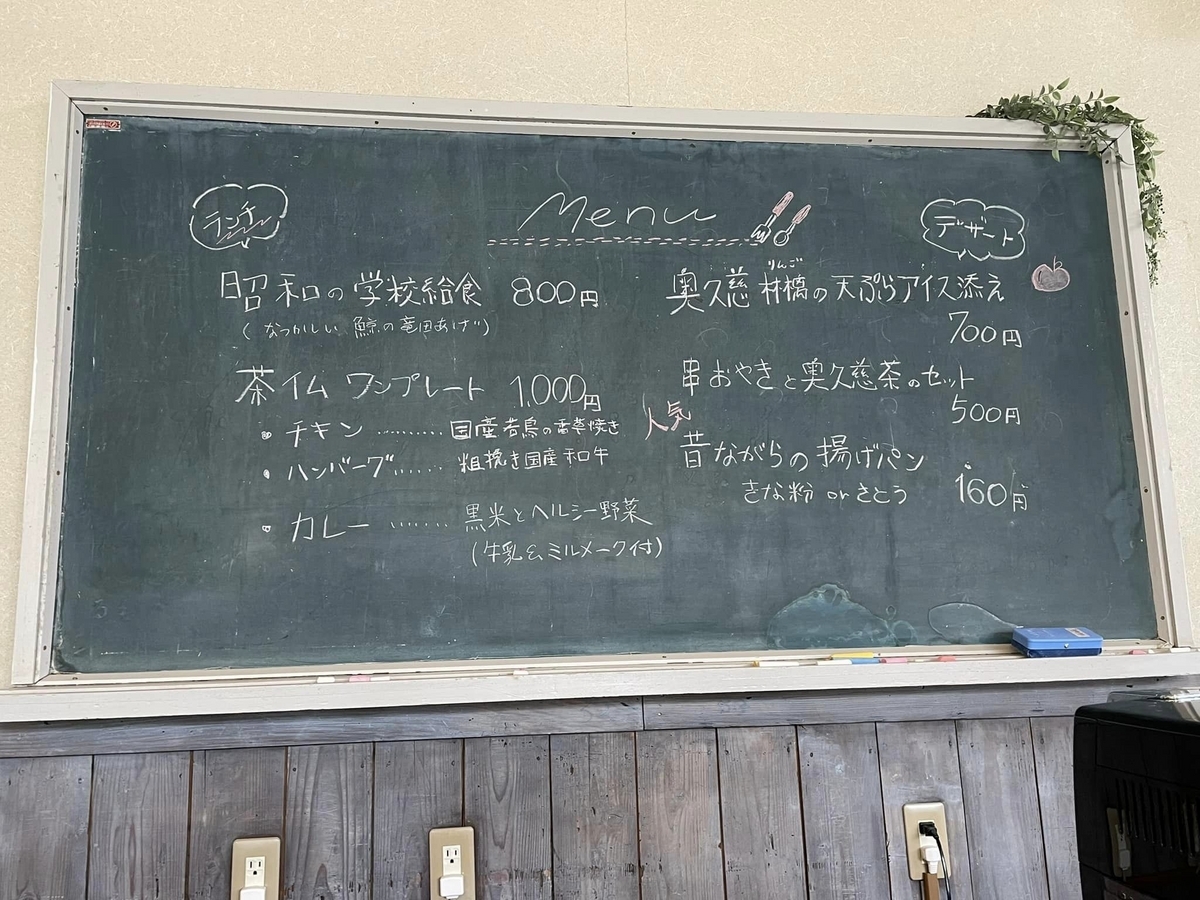 Menu
ランチ
昭和の学校給食 800円
(なつかしい 鯨の竜田あげ)
茶イム ワンプレート 1,000円
・チキン ......... 国産若鳥の香草焼き
・ハンバーグ...... 粗挽き国産和牛
・カレー ........ 黒米とヘルシー野菜
(牛乳&ミルメーク付)
デザート
りんご
奥久慈林檎の天ぷらアイス添え
700円
串おやきと奥久慈茶のセット
500円
人気
昔ながらの揚げパン
きな粉 or さとう 160円